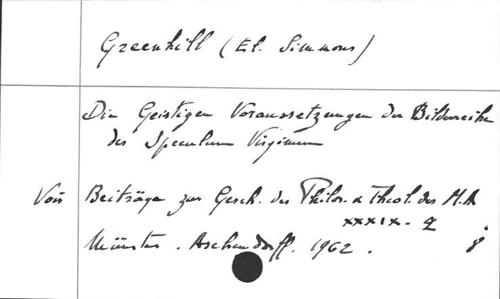 Greenhill (El. Simmons)
Die Geistigen Voraussetzungen der Bilderreihe
des Speculum Virginum
Voir Beiträge zur Gesch. des Philos. u Theol. des M.A
XXXIX. 2
Münster. Aschendorff. 1962. 8°